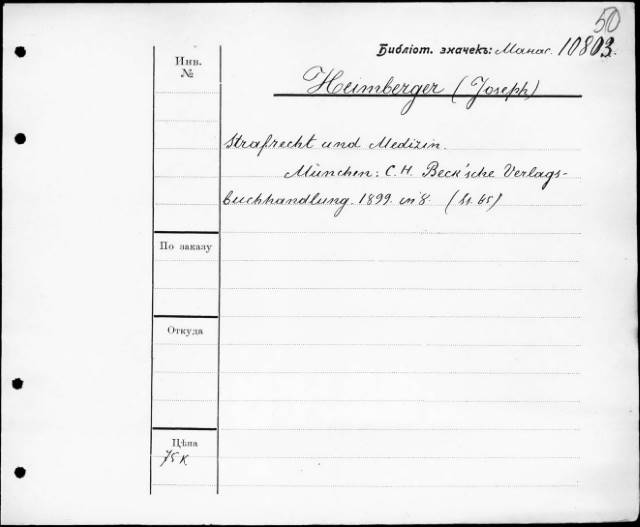 50
Библіот. значекъ: Манас. 10803.
Инв.
№
Heimberger (Joseph)
Strafrecht und Medizin.
München: C. H. Beck'sche Verlags-
buchhandlung. 1899. in 8.
По заказу
Откуда
Цѣна
75 к